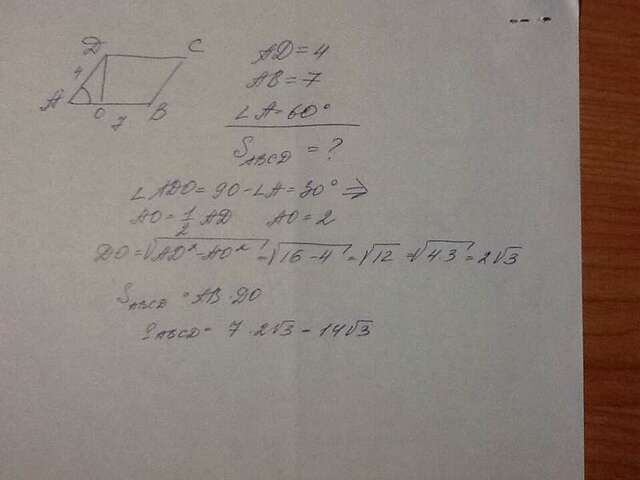 D C
4
A O B
7
AD = 4
AB = 7
∠A = 60°
S_ABCD = ?
∠ADO = 90 - ∠A = 30° ⇒
AO = 1/2 AD AO = 2
DO = √(AD² - AO²) = √(16 - 4) = √12 = √(4·3) = 2√3
S_ABCD = AB · DO
S_ABCD = 7 · 2√3 = 14√3